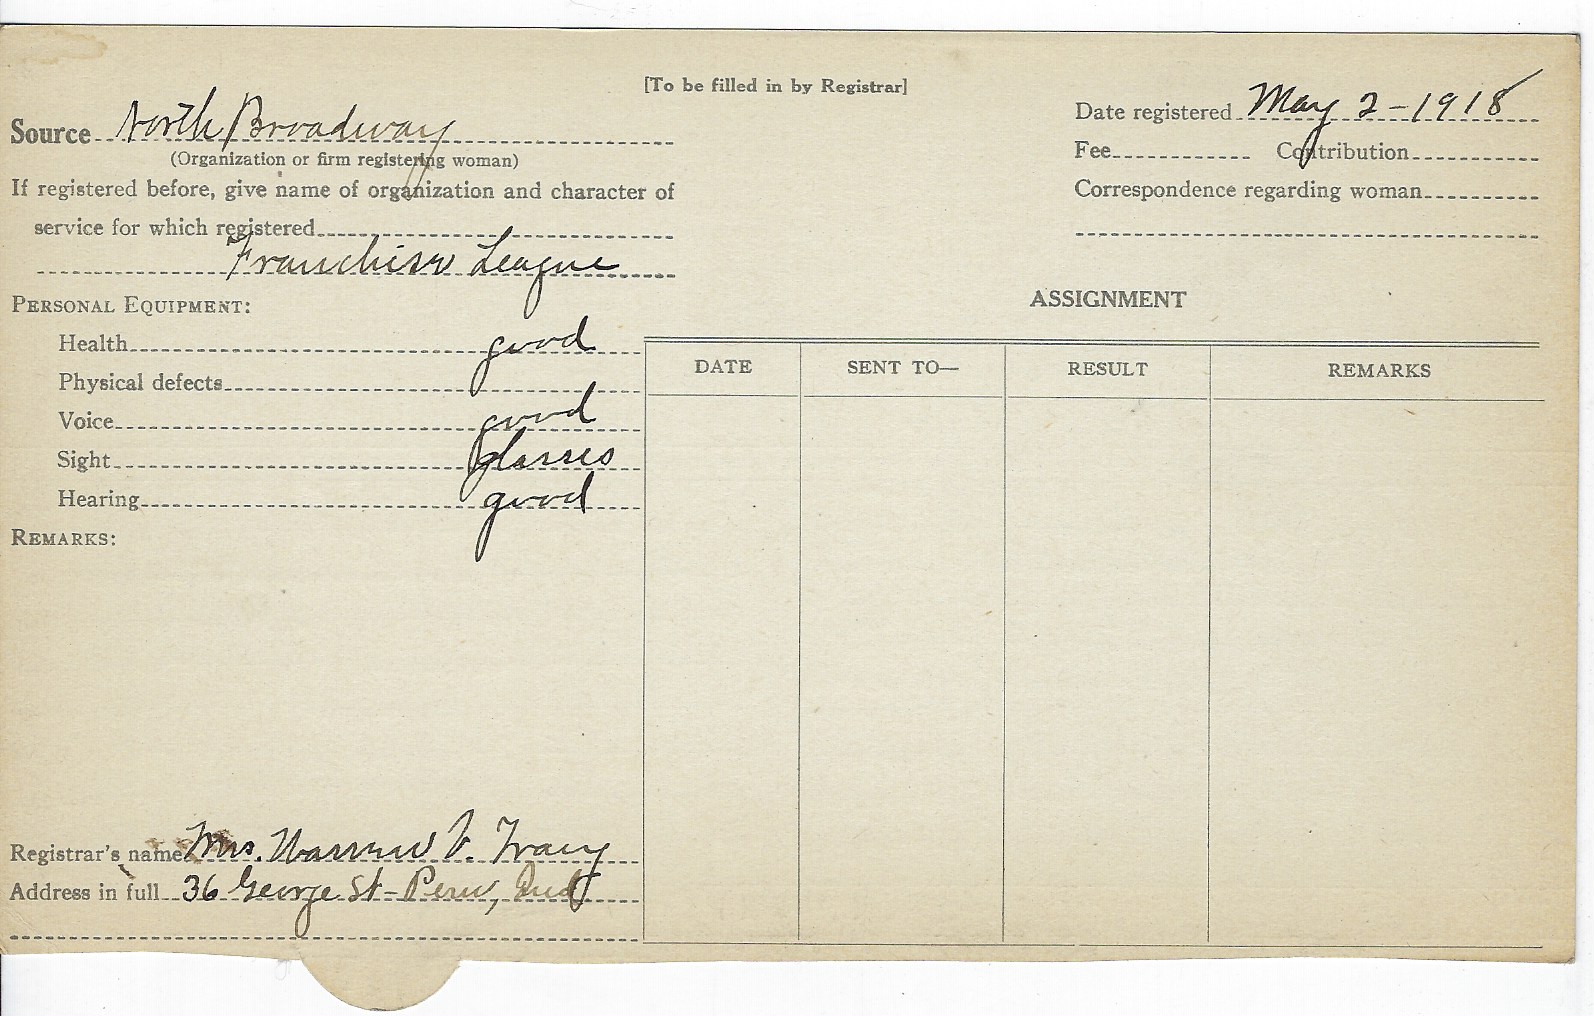 [To be filled in by Registrar]
Source North Broadway
(Organization or firm registering woman)
If registered before, give name of organization and character of
service for which registered
Franchise League
Date registered May 2-1918
Fee Contribution
Correspondence regarding woman
PERSONAL EQUIPMENT:
Health good
Physical defects
Voice good
Sight glasses
Hearing good
REMARKS:
ASSIGNMENT
DATE SENT TO— RESULT REMARKS
Registrar's name Mrs. Warren V. Tracy
Address in full 36 George St - Peru, Ind